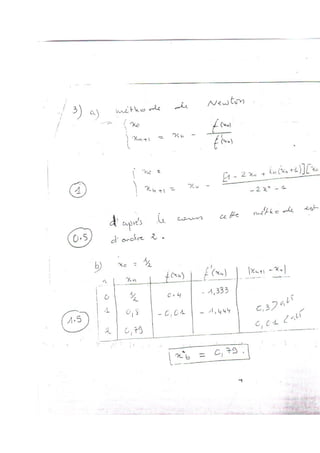 3) a) méthode de Newton
{ x0
x_{n+1} = x_n - f(x_n) / f'(x_n)
{ x0 =
① x_{n+1} = x_n - [1 - 2x_n + ln(x_n+1)][x
-2x -
d'après le cours cette méthode est
0.5 d'ordre 2.
b) x0 = 1/2
n x_n f(x_n) f'(x_n) |x_{n+1} - x_n|
0 1/2 0.4 -1,333
1 0,8 -0,01 -1,444 0,3 >
1.5 2 0,79 0,01 <
= 0,79.